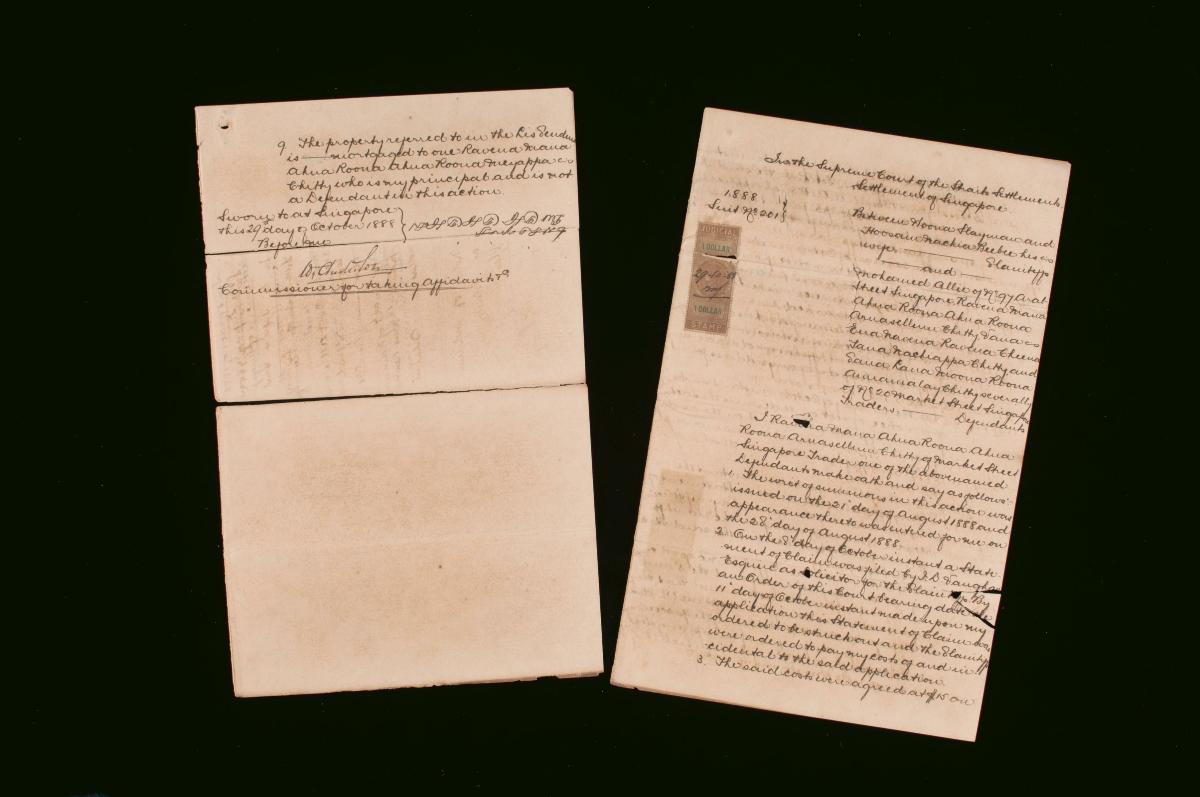 9 The property referred to in the Lis Pendens
is mortgaged to one Ravena Mana
Ahna Roona Ahna Roona Meyappa
Chitty who is my principal and is not
a Defendant in this action.
Sworn to at Singapore
this 29 day of October 1888
Before me
Commissioner for taking Affidavits &c
In the Supreme Court of the Straits Settlements
Settlement of Singapore.
1888
Suit No 201
Between Hoona Slayman and
Hoosain Nachia Beebee his
wife Plaintiffs
and
Mohamed Allie of No 97 Arab
Street Singapore Ravena Mana
Ahna Roona Ahna Roona
Arnasellum Chitty Pana
Ena Navena Ravena Cheena
Tana Nachiappa Chitty and
Sana Rana Moona Roona
Annamalay Chitty severally
of No 20 Market Street Singapore
Traders. Defendants
JUDICIAL
1 DOLLAR
29-10-88
1 DOLLAR
STAMP
I Ravena Mana Ahna Roona Ahna
Roona Arnasellum Chitty of Market Street
Singapore Trader one of the abovenamed
Defendants make oath and say as follows:-
1. The writ of summons in this action was
issued on the 21st day of August 1888 and
appearance thereto was entered for me on
the 28 day of August 1888.
2. On the 8 day of October instant a State-
ment of Claim was filed by J. D. Vaughan
Esquire as solicitor for the Plaintiffs. By
an Order of this Court bearing date the
11 day of October instant made upon my
application this Statement of Claim was
ordered to be struck out and the Plaintiffs
were ordered to pay my costs of and in-
cidental to the said application.
3. The said costs were agreed at $15 on